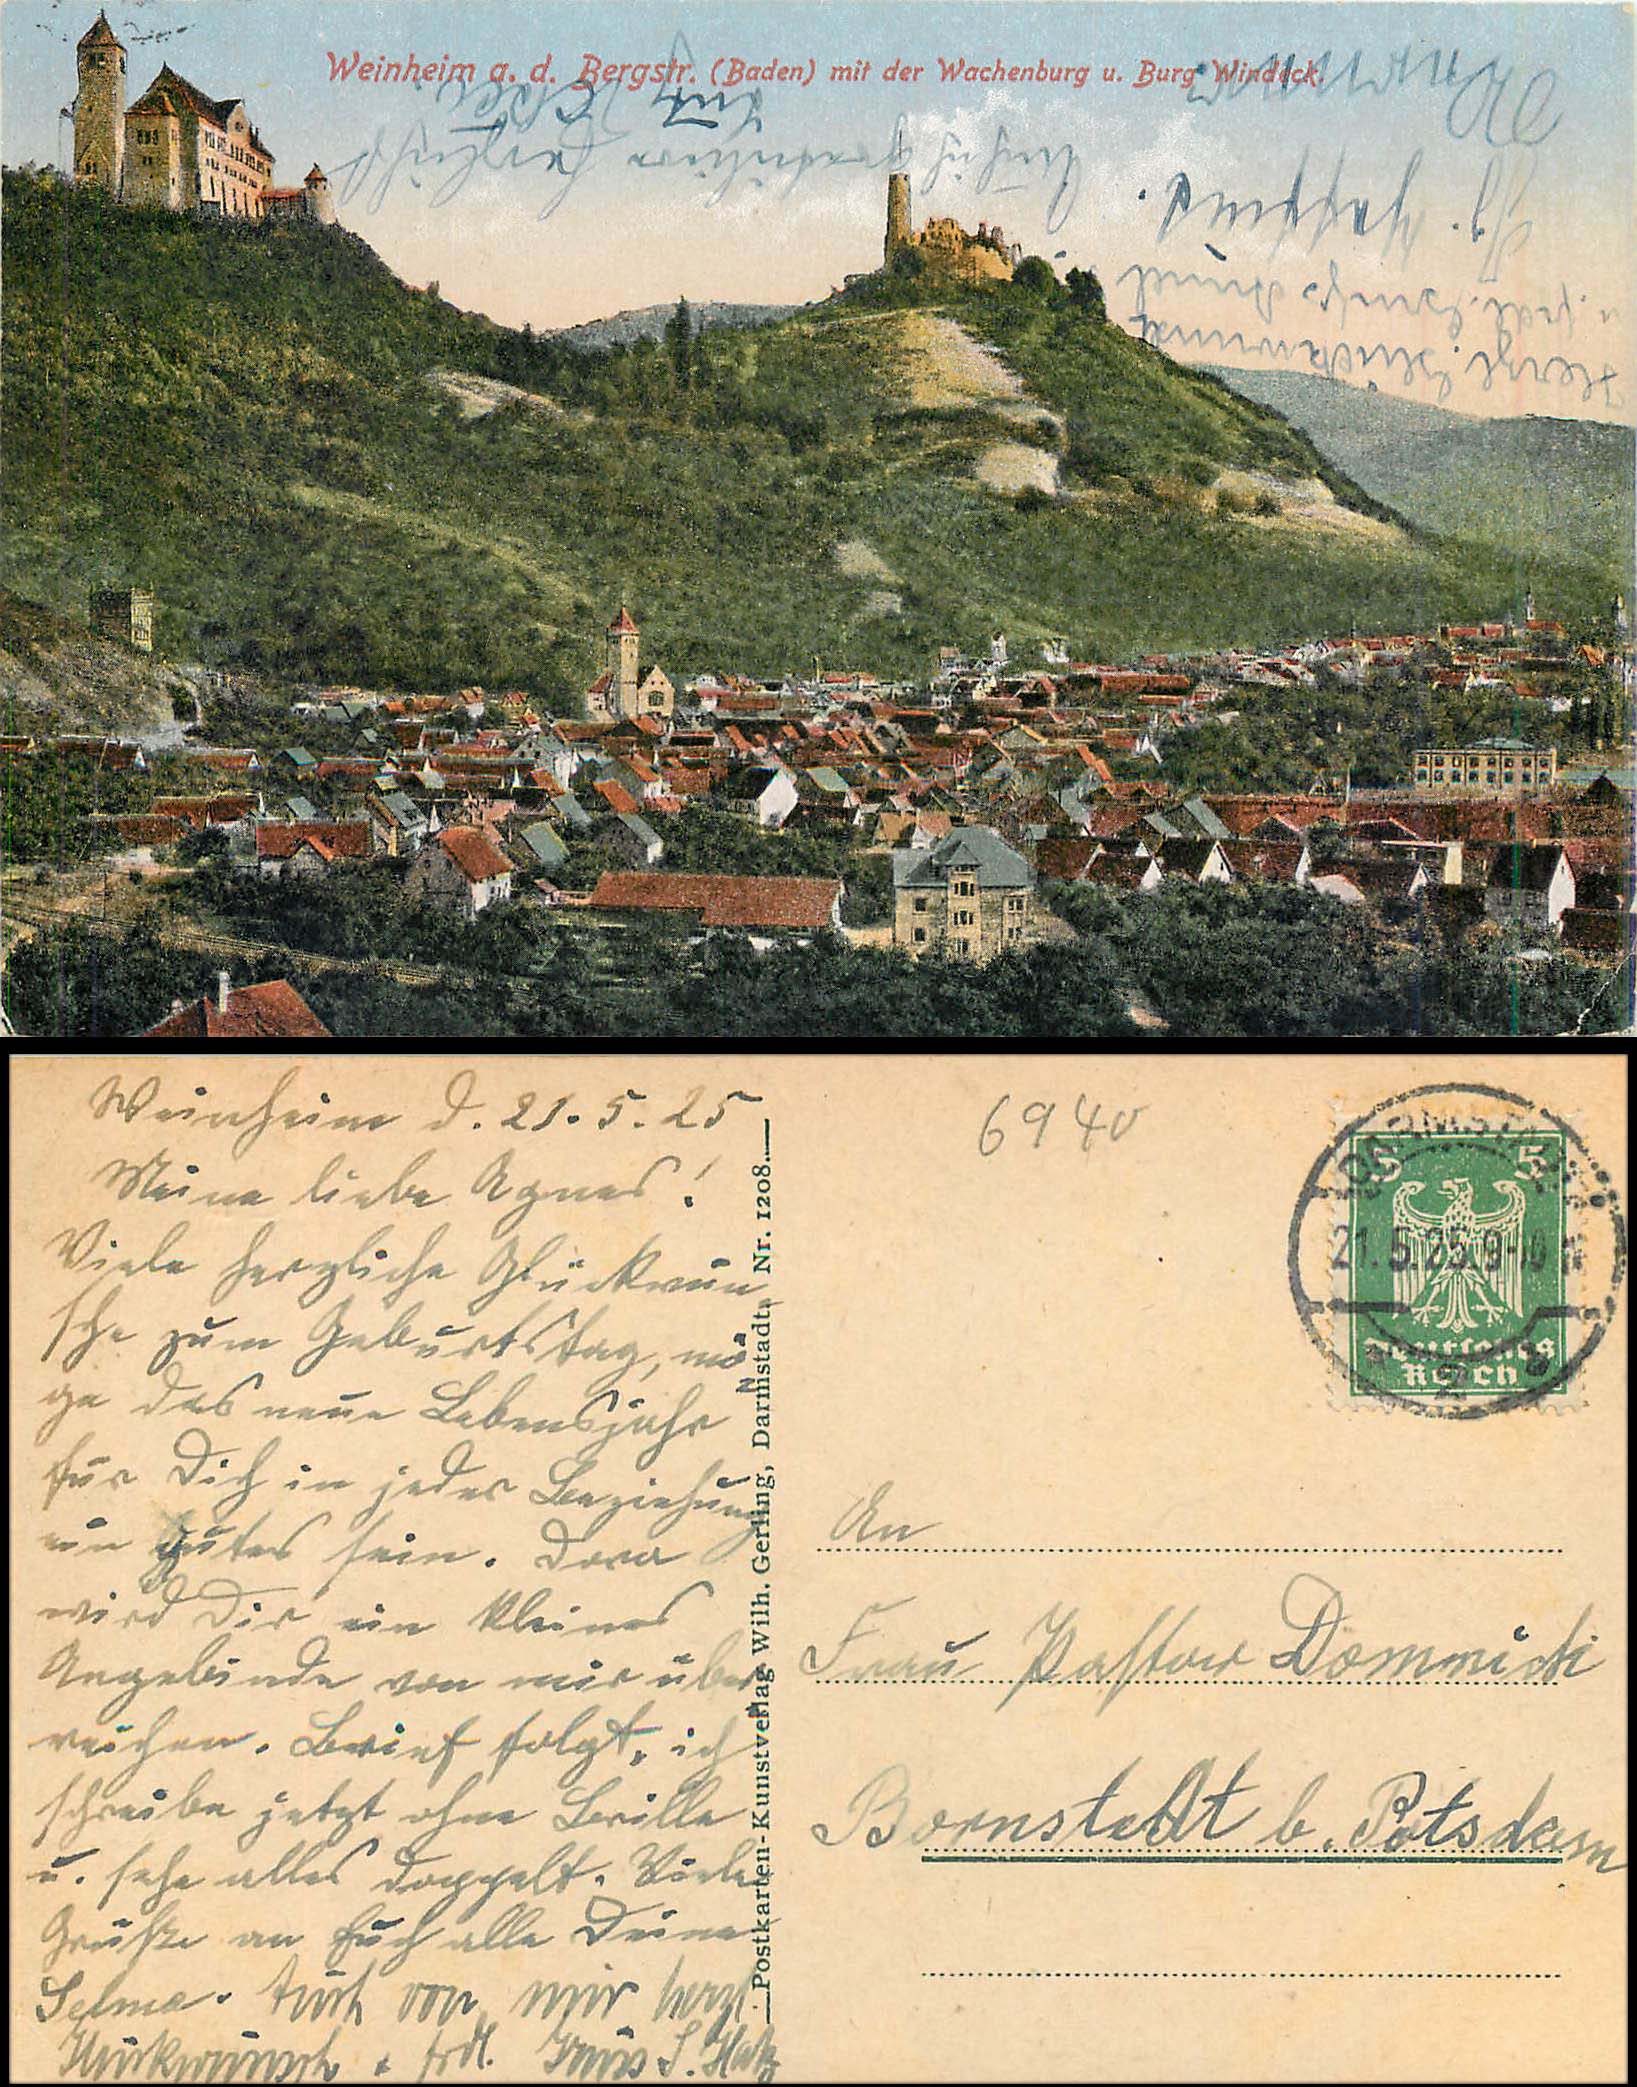 Weinheim a. d. Bergstr. (Baden) mit der Wachenburg u. Burg Windeck.
Weinheim d. 21. 5. 25
Meine liebe Agnes!
Viele herzliche Glückwün-
sche zum Geburtstag, mö-
ge das neue Lebensjahr
für Dich in jeder Beziehung
ein gutes sein. Dora
wird Dir ein kleines
Angebinde von mir über-
reichen. Brief folgt, ich
schreibe jetzt ohne Brille
u. sehe alles doppelt. Viele
Grüße an Euch alle Deine
Selma. Auch von mir herzl.
Glückwunsch + frdl. Gruß
Postkarten-Kunstverlag Wilh. Gerling, Darmstadt, Nr. 1208.
6940
DARMSTADT
21.5.25.9-10 N
2
5 5
Deutsches
Reich
An
Frau Pastor Dommisch
Bornstedt b. Potsdam